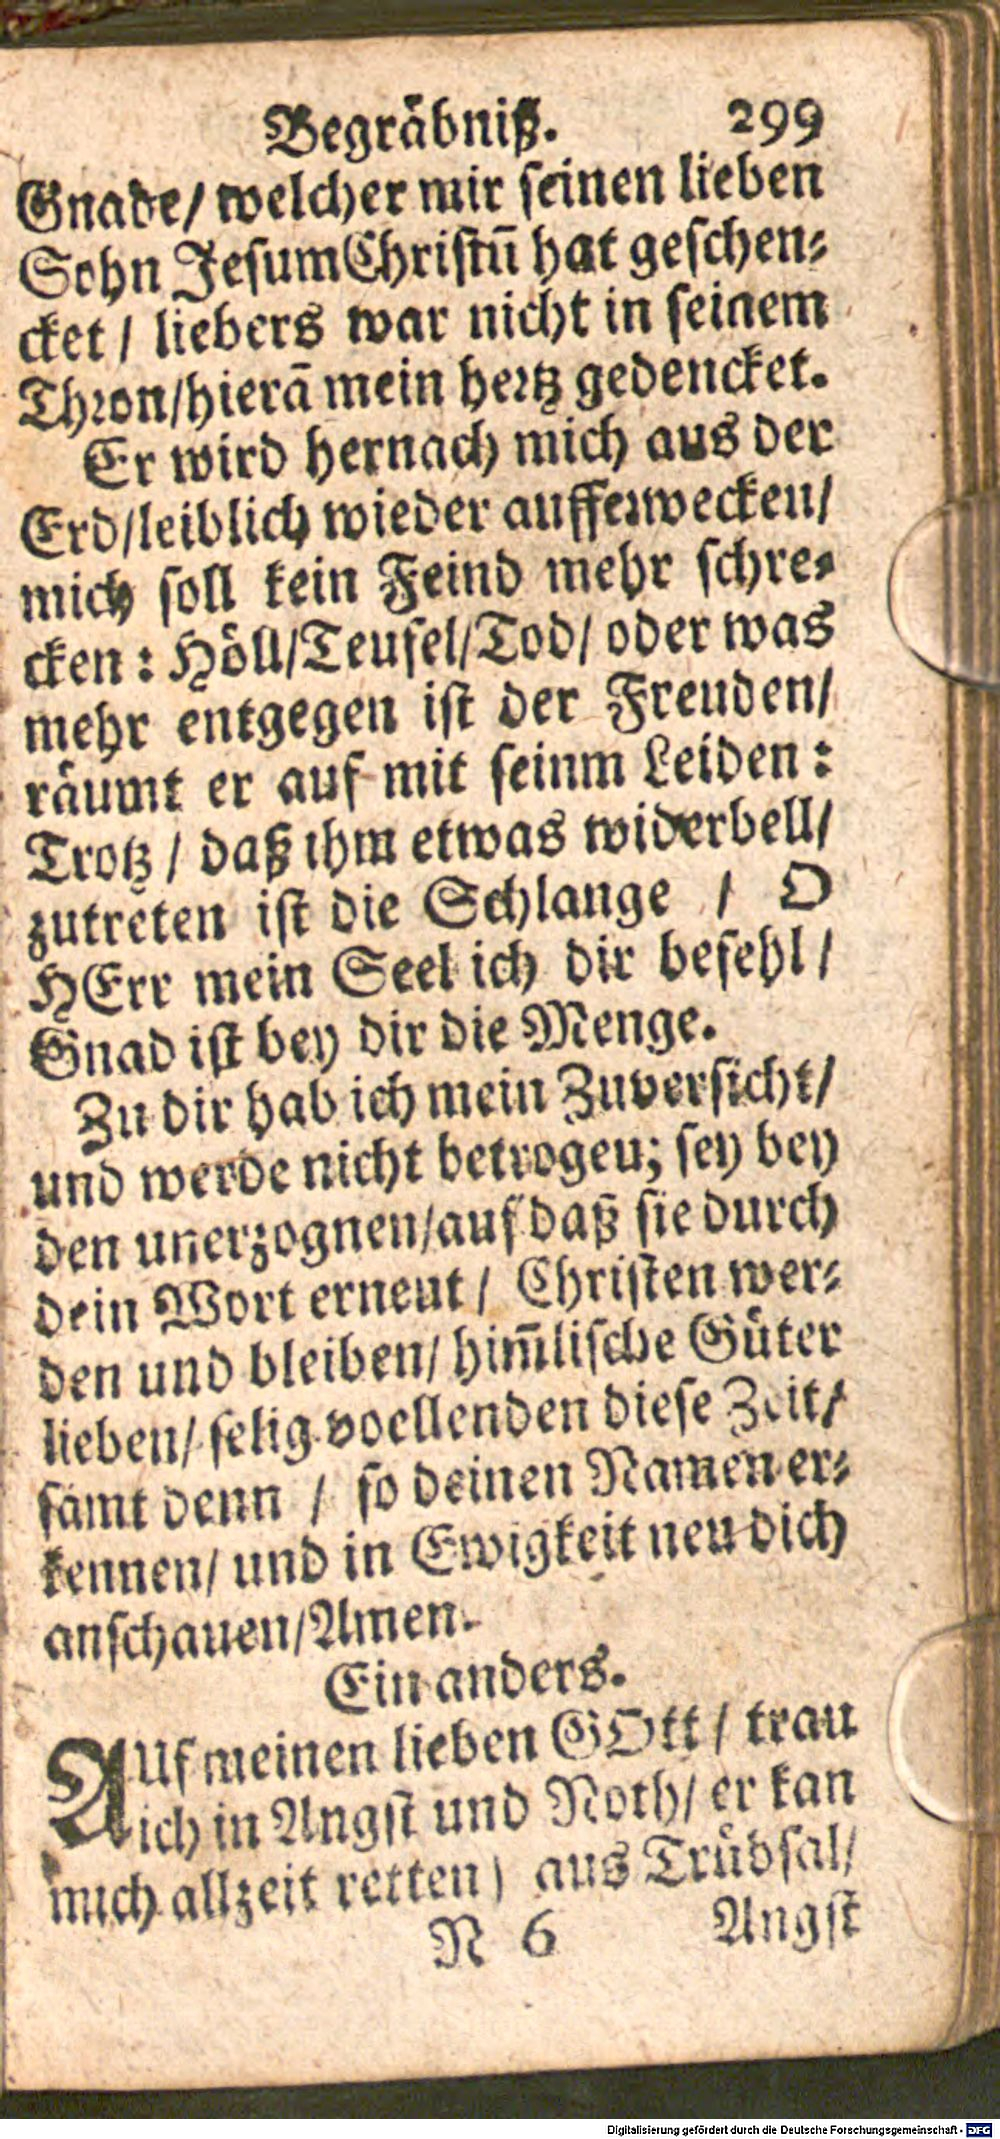 Begräbniß. 299
Gnade/ welcher mir seinen lieben
Sohn JesumChristū hat geschen-
cket / liebers war nicht in seinem
Thron/hierā mein hertz gedencket.
Er wird hernach mich aus der
Erd/leiblich wieder aufferwecken/
mich soll kein Feind mehr schre-
cken: Höll/Teufel/Tod/ oder was
mehr entgegen ist der Freuden/
räumt er auf mit seinm Leiden:
Trotz / daß ihm etwas widerbell/
zutreten ist die Schlange / O
HErr mein Seel ich dir befehl/
Gnad ist bey dir die Menge.
Zu dir hab ich mein Zuversicht/
und werde nicht betrogen; sey bey
den unerzognen/auf daß sie durch
dein Wort erneut / Christen wer-
den und bleiben/ him̄lische Güter
lieben/ selig voellenden diese Zeit/
samt denn / so deinen Namen er-
kennen/ und in Ewigkeit neu dich
anschauen/Amen.
Ein anders.
AUf meinen lieben GOtt / trau
ich in Angst und Noth/ er kan
mich allzeit retten) aus Trübsal/
N 6 Angst
Digitalisierung gefördert durch die Deutsche Forschungsgemeinschaft - DFG